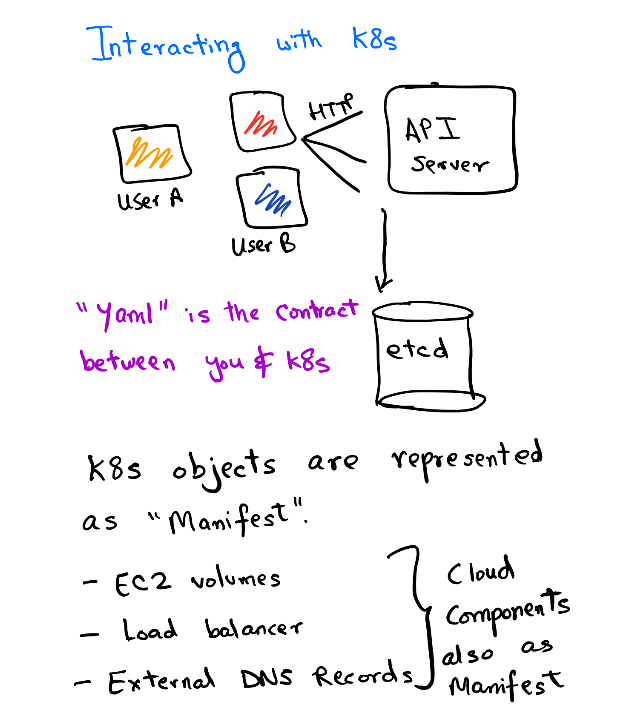 Interacting with K8s
HTTP
API
Server
User A
User B
"Yaml" is the contract
between you & K8s
etcd
K8s objects are represented
as "Manifest".
- EC2 volumes
- Load balancer
- External DNS Records
Cloud
Components
also as
Manifest